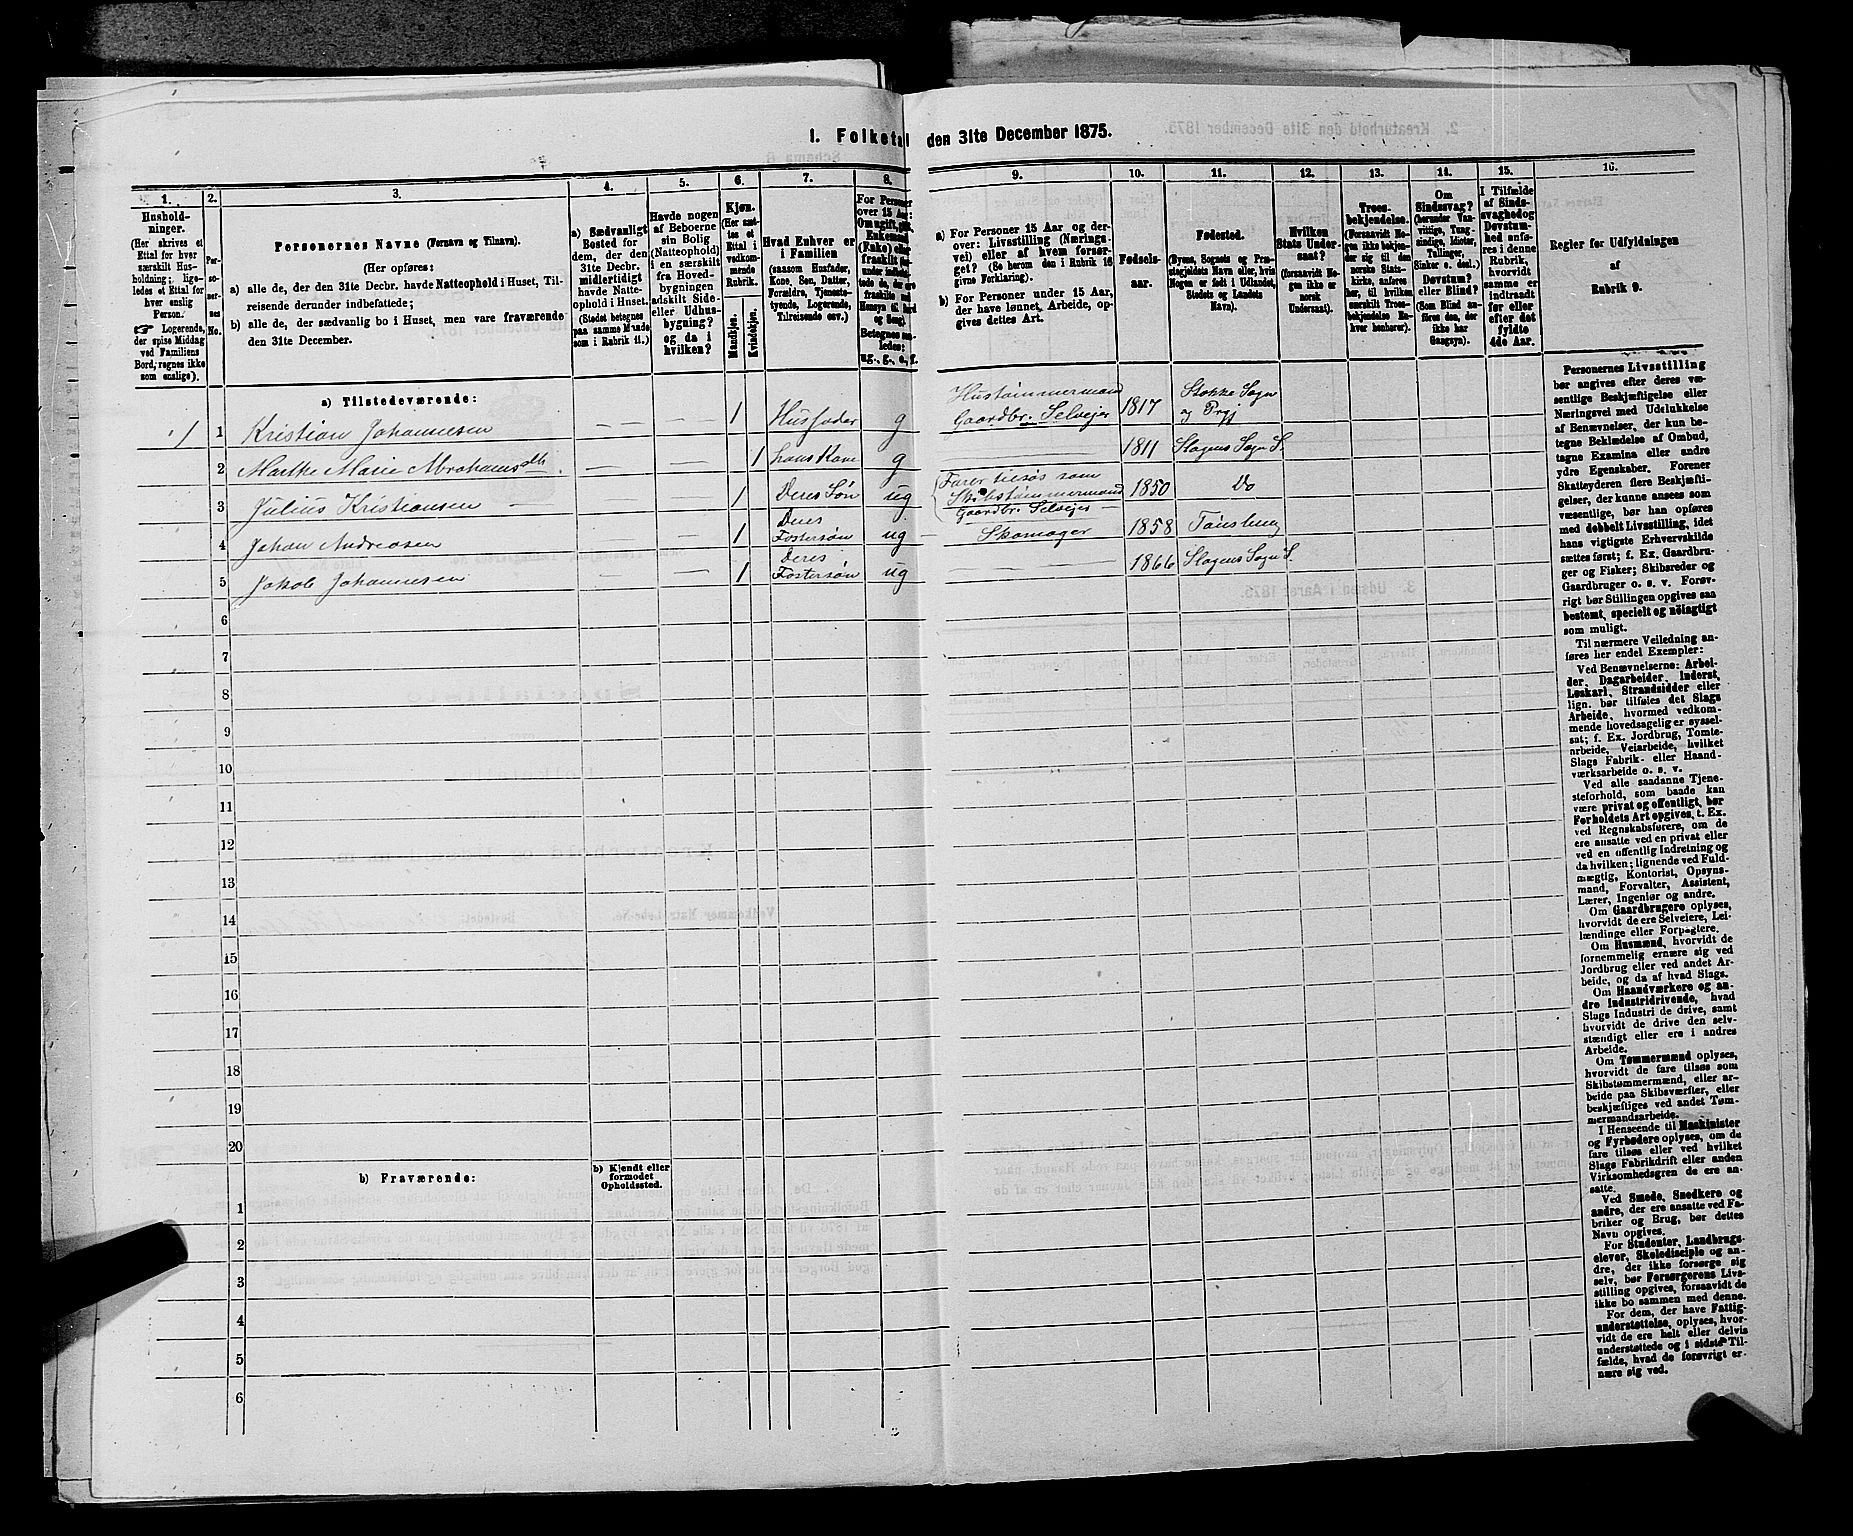 1. Folketal den 31te December 1875.
1.
Hushold-
ninger.
(Her skrives et
Ettal for hver
særskilt Hus-
holdning; lige-
ledes et Ettal for
hver enslig
Person.)
☞ Logerende,
der spise Middag
ved Familiens
Bord, regnes ikke
som enslige).
2.
Per-
so-
ner-
nes
No.
3.
Personernes Navne (Fornavn og Tilnavn).
(Her opføres:
a) alle de, der den 31te Decbr. havde Natteophold i Huset, Til-
reisende derunder indbefattede;
b) alle de, der sædvanlig bo i Huset, men vare fraværende
den 31te December.
4.
a) Sædvanligt
Bosted for
dem, der den
31te Decbr.
midlertidigt
havde Natte-
ophold i Huset.
(Stedet betegnes
paa samme Maade
som i Rubrik 11.)
5.
Havde nogen
af Beboerne
sin Bolig
(Natteophold)
i en særskilt
fra Hoved-
bygningen
adskilt Side-
eller Udhus-
bygning?
og da i
hvilken?
6.
Kjøn.
(Her sæt-
tes et
Ettal i
vedkom-
mende
Rubrik.
Mandkjøn.
Kvindekjøn.
7.
Hvad Enhver er
i Familien
(saasom Husfader,
Kone, Søn, Datter,
Forældre, Tjeneste-
tyende, Logerende,
Tilreisende osv.)
8.
For Personer
over 15 Aar:
Om ugift, gift,
Enkemand
(Enke) eller
fraskilt
Betegnes saa-
ledes:
ug., g., e., f.
9.
a) For Personer 15 Aar og der-
over: Livsstilling (Nærings-
vei) eller af hvem forsør-
get? (Se herom den i Rubrik 16
givne Forklaring).
b) For Personer under 15 Aar,
der have lønnet Arbeide, op-
gives dettes Art.
10.
Fødsels-
aar.
11.
Fødested.
(Byens, Sognets og Præ-
stegjeldets Navn eller, hvis
Nogen er født i Udlandet,
Stedets og Landets
Navn).
12.
Hvilken
Stats Under-
saat?
(forsaavidt No-
gen ikke er
norsk
Undersaat).
13.
Troes-
bekjendelse.
(Forsaavidt No-
gen ikke bekjen-
der sig til den
norske Stats-
kirke, anføres
her, til hvilken
særskilt Troes-
bekjendelse En-
hver henhører).
14.
Om
Sindssvag?
(herunder Van-
vittige, Tung-
sindige, Idioter,
Tullinger,
Sinker o. desl.)
Døvstum?
eller Blind?
(Som Blind an-
føres den, der
ikke har
Gangsyn).
15.
I Tilfælde
af Sinds-
svaghed og
Døvstum-
hed anfø-
res i denne
Rubrik,
hvorvidt
samme er
indtraadt
før eller
efter det
fyldte
4de Aar.
16.
Regler for Udfyldningen
af
Rubrik 9.
a) Tilstedeværende:
1 1 Kristian Johannesen — — — 1 Husfader g Hustømmermand Gaardbr. Selvejer 1817 Stokke Sogn og Prgj
2 Marthe Marie Abrahamsdtr. — — 1 hans Kone g — 1811 Slagens Sogn S.
3 Julius Kristiansen — — — 1 Deres Søn ug Farer tilsøs som Skibstømmermand Gaardbr. Selvejer — 1850 Do
4 Johan Andreasen — — 1 Deres Fostersøn ug — Skomager 1858 Tønsberg
5 Jakob Johannesen — — 1 Deres Fostersøn ug — — 1866 Slagens Sogn S.
6
7
8
9
10
11
12
13
14
15
16
17
18
19
20
b) Fraværende:
b) Kjendt eller
formodet
Opholdssted.
1
2
3
4
5
6
Personernes Livsstilling
bør angives efter deres væ-
sentlige Beskjæftigelse eller
Næringsvei med Udelukkelse
af Benævnelser, der kun be-
tegne Beklædelse af Ombud,
tagne Examina eller andre
ydre Egenskaber. Forener
Skatteyderen flere Beskjæfti-
gelser, der kunne ansees som
væsentlige, bør han opføres
med dobbelt Livsstilling, idet
hans vigtigste Erhvervskilde
sættes først; f. Ex. Gaardbru-
ger og Fisker; Skibsreder og
Gaardbruger o. s. v. Forøv-
rigt bør Stillingen opgives saa
bestemt, specielt og nøiagtigt
som muligt.
Til nærmere Veiledning an-
føres her endel Exempler:
Ved Benævnelserne: Arbei-
der, Dagarbeider, Inderst,
Løskarl, Strandsidder eller
lign. bør tilføies det Slags
Arbeide, hvormed vedkom-
mende hovedsagelig er syssel-
sat; f. Ex. Jordbrug, Tomte-
arbeide, Veiarbeide, hvilket
Slags Fabrik- eller Haand-
værksarbeide o. s. v.
Ved alle saadanne Tjene-
steforhold, som baade kan
være privat og offentligt, bør
Forholdets Art opgives, t. Ex.
ved Regnskabsførere, om de
ere ansatte ved en privat eller
ved en offentlig Indretning og
da hvilken; lignende ved Fuld-
mægtig, Kontorist, Opsyns-
mand, Forvalter, Assistent,
Lærer, Ingeniør og andre.
Om Gaardbrugere oplyses,
hvorvidt de ere Selveiere, Lei-
lændinge eller Forpagtere.
Om Husmænd, hvorvidt de
fornemmelig ernære sig ved
Jordbrug eller ved andet Ar-
beide, og da af hvad Slags.
Om Haandværkere og an-
dre Industridrivende, hvad
Slags Industri de drive, samt
hvorvidt de drive den selv-
stændigt eller ere i andres
Arbeide.
Om Tømmermænd oplyses,
hvorvidt de fare tilsøs som
Skibstømmermænd, eller ar-
beide paa Skibsværfter, eller
beskjæftiges ved andet Tøm-
mermandsarbeide.
I Henseende til Maskinister
og Fyrbødere oplyses, om de
fare tilsøs eller ved hvilket
Slags Fabrikdrift eller anden
Virksomhedsgren de ere an-
satte.
Ved Smede, Snedkere og
andre, der ere ansatte ved Fa-
briker og Brug, bør dettes
Navn opgives.
For Studenter, Landbrugs-
elever, Skoledisciple og an-
dre, der ikke forsørge sig
selv, bør Forsørgerens Livs-
stilling opgives, forsaavidt de
ikke bo sammen med denne.
For dem, der have Fattig-
understøttelse, oplyses, hvor-
vidt de ere helt eller delvis
understøttede og i sidste Til-
fælde, hvad de forøvrigt er-
nære sig ved.